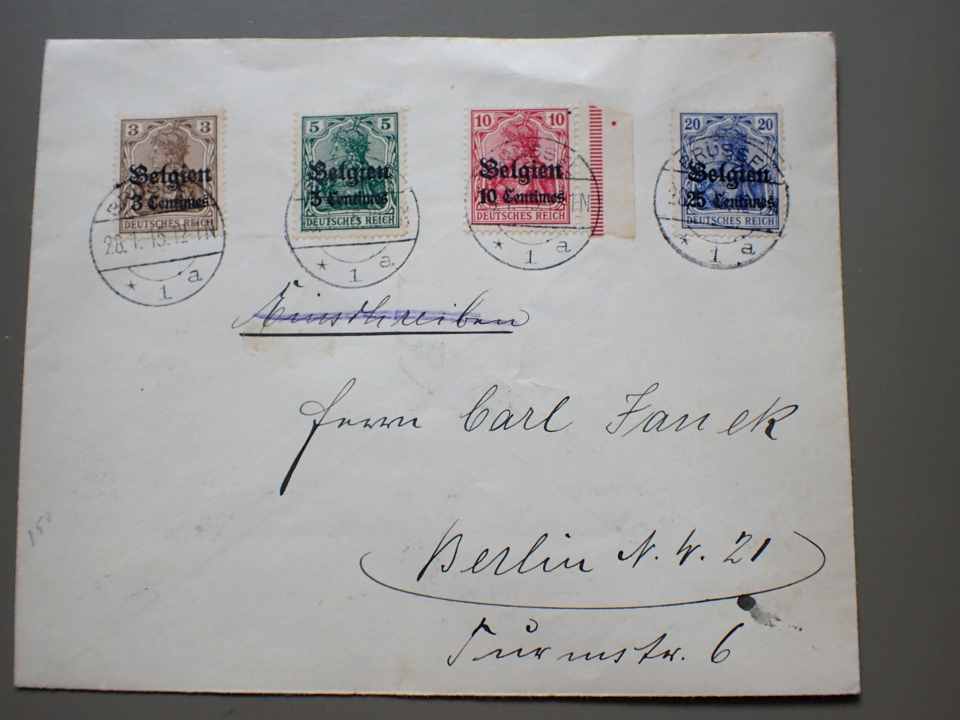 3 3
Belgien
3 Centimes
DEUTSCHES REICH
5 5
Belgien
5 Centimes
DEUTSCHES REICH
10 10
Belgien
10 Centimes
DEUTSCHES REICH
20 20
Belgien
25 Centimes
DEUTSCHES REICH
28.1.15.12-1N
* 1 a
* 1 a
BRÜSSEL
* 1 a
BRÜSSEL
* 1 a
Einschreiben
Herrn Carl Janek
Berlin N.W. 21
Turmstr. 6